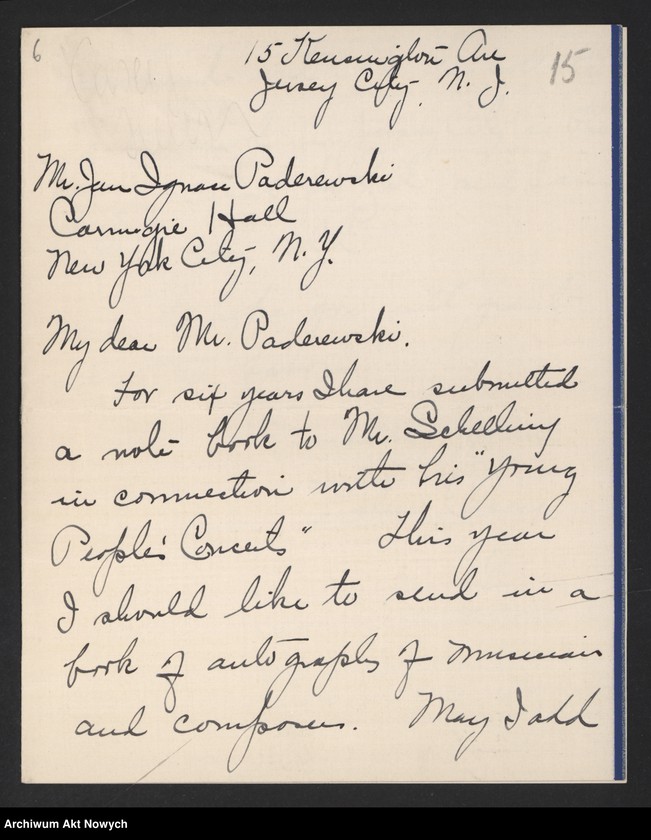 6
15 Kensington Av
Jersey City, N. J.
15
Mr. Jan Ignace Paderewski
Carnegie Hall
New York City, N. Y.
My dear Mr. Paderewski.
For six years I have submitted
a note book to Mr. Schelling
in connection with his "Young
People's Concerts" This year
I should like to send in a
book of autographs of musicians
and composers. May I add
Archiwum Akt Nowych